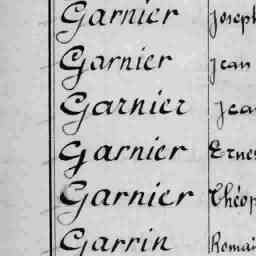 Garnier Joseph
Garnier Jean
Garnier Jean
Garnier Ernes
Garnier Théop
Garrin Romai